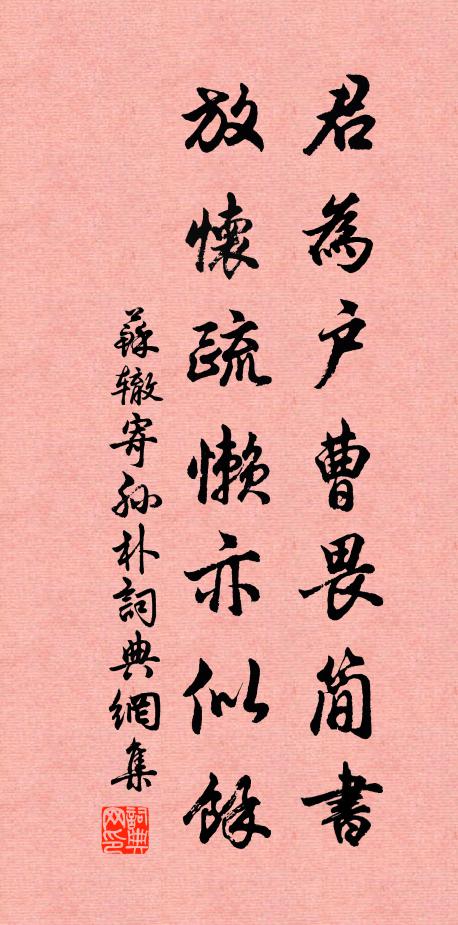 君為户曹畏簡書
放懷疏懶亦似餘
蘇辙寄孙朴詞典網集
詞典网印